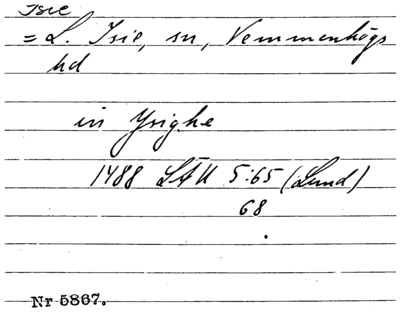 Isie
= L. Isie, sn, Vemmenhögs
hd
in Ysighe
1488 LÄU 5:65 (Lund)
68
Nr 5867.